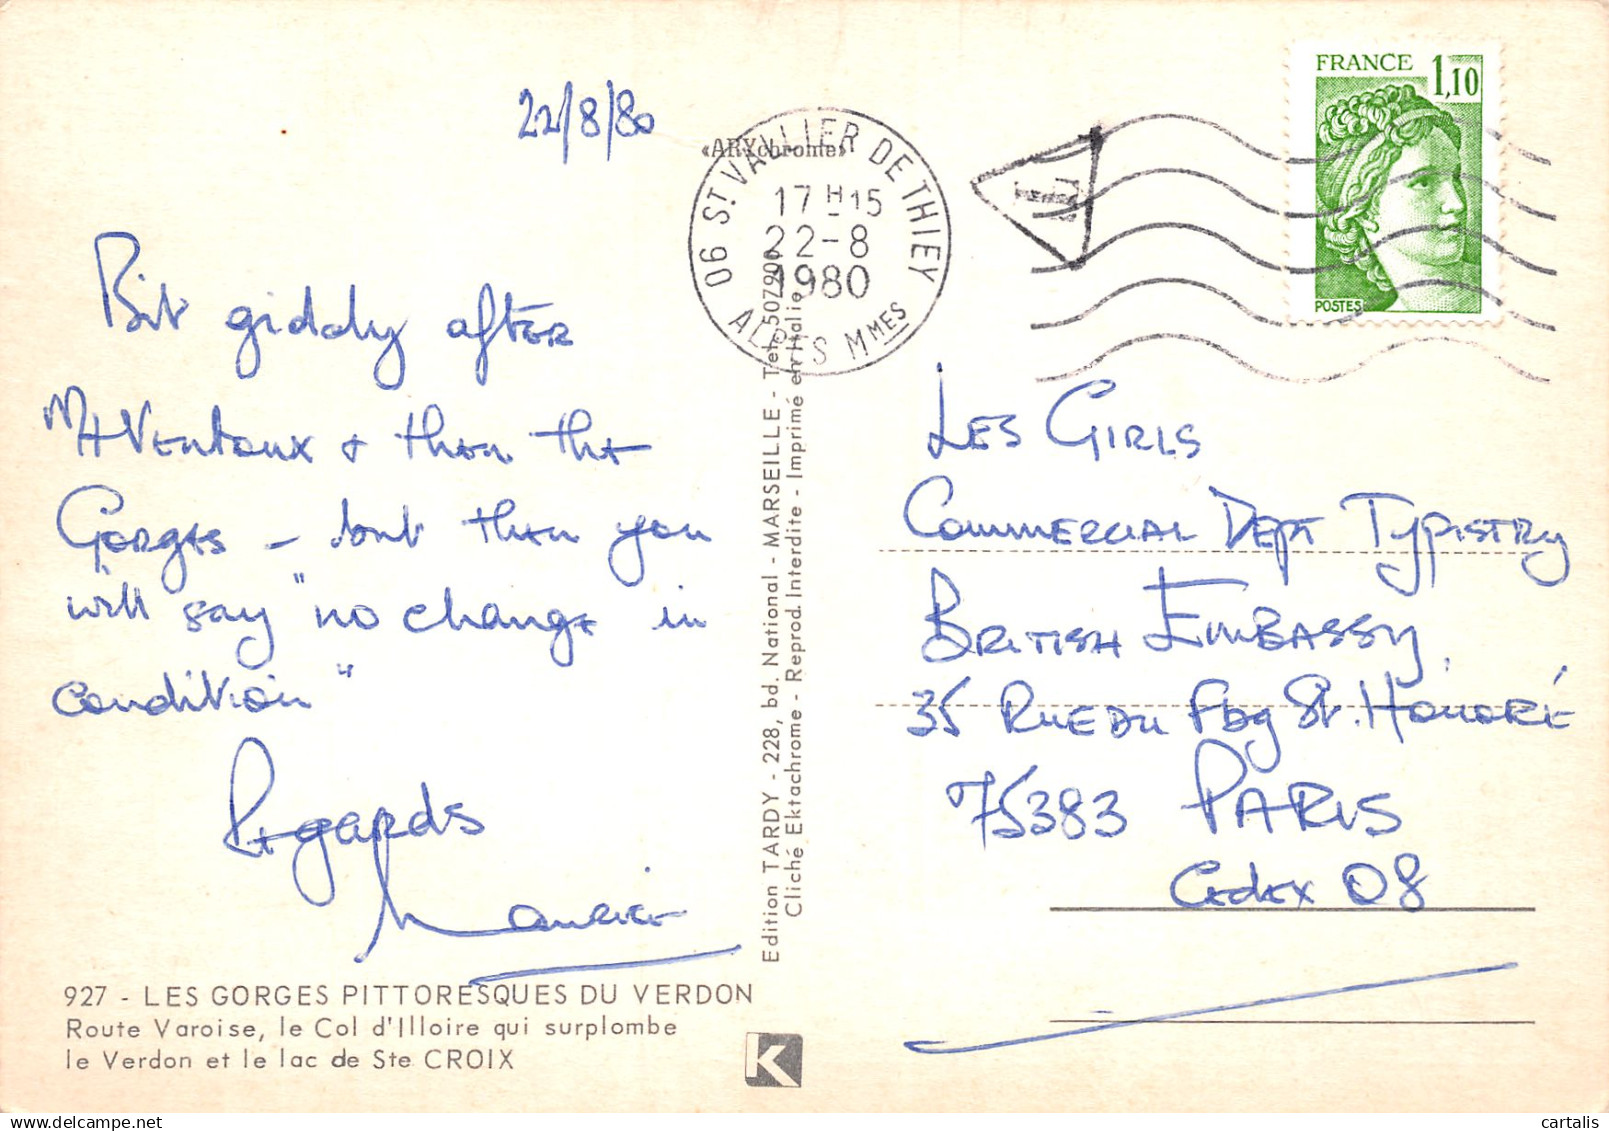 22/8/80
Bit giddy after
Mt Ventoux + then the
Gorges – but then you
will say "no change in
condition"
Regards
Maurice
927 - LES GORGES PITTORESQUES DU VERDON
Route Varoise, le Col d'Illoire qui surplombe
le Verdon et le lac de Ste CROIX
Edition TARDY - 228, bd. National - MARSEILLE - Tel. 507900
Cliché Ektachrome - Reprod. Interdite - Imprimé en Italie
«ARYchrome»
06 ST VALLIER DE THIEY
17 H 15
22-8
1980
ALPES MMES
FRANCE 1,10
POSTES
LES GIRLS
COMMERCIAL DEPT TYPISTRY
BRITISH EMBASSY,
35 RUE DU Fbg St. HONORÉ
75383 PARIS
Cedex 08
K
cartalis
www.delcampe.net